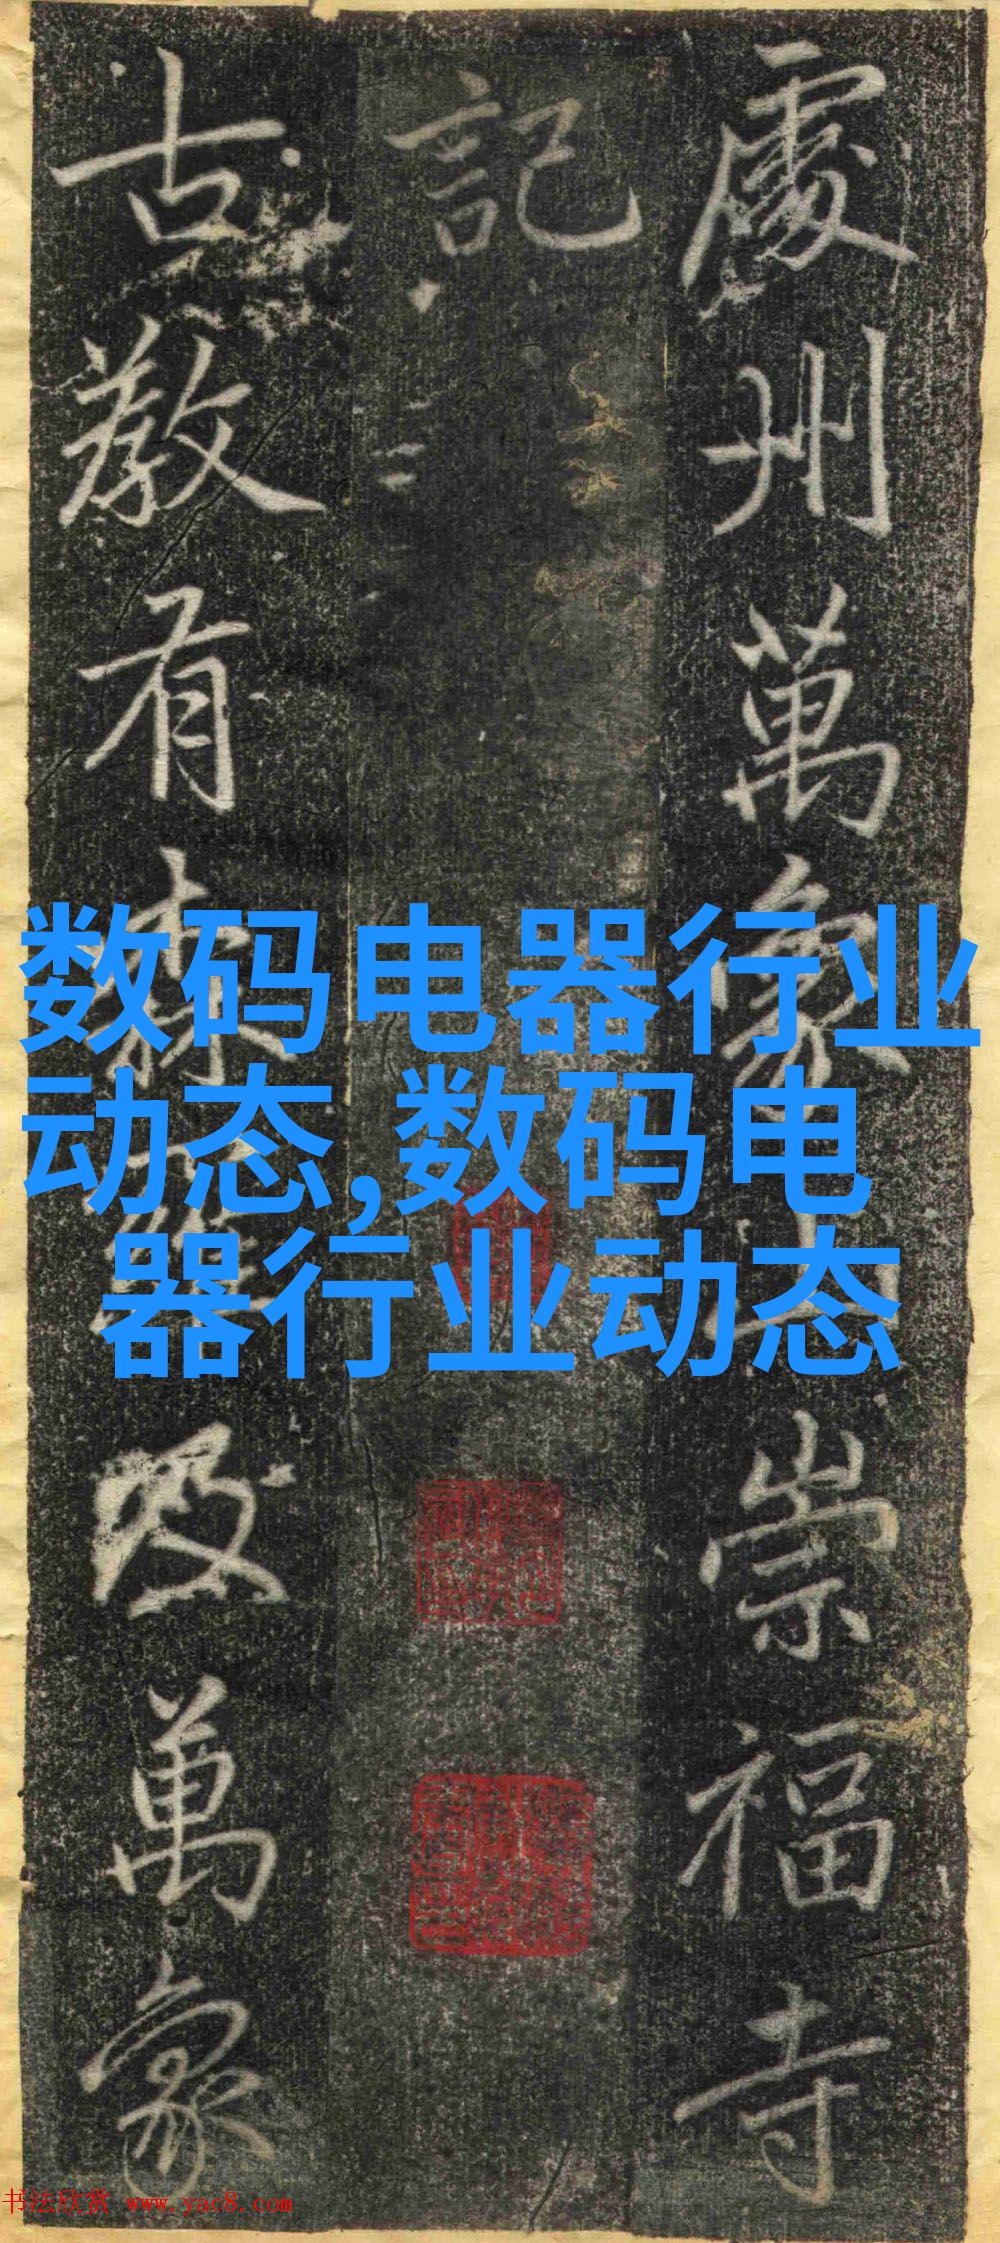 處州萬象山崇福寺
記
古教有森羅及萬象
数码电器行业
动态,数码电
器行业动态
书法欣赏 www.yac8.com